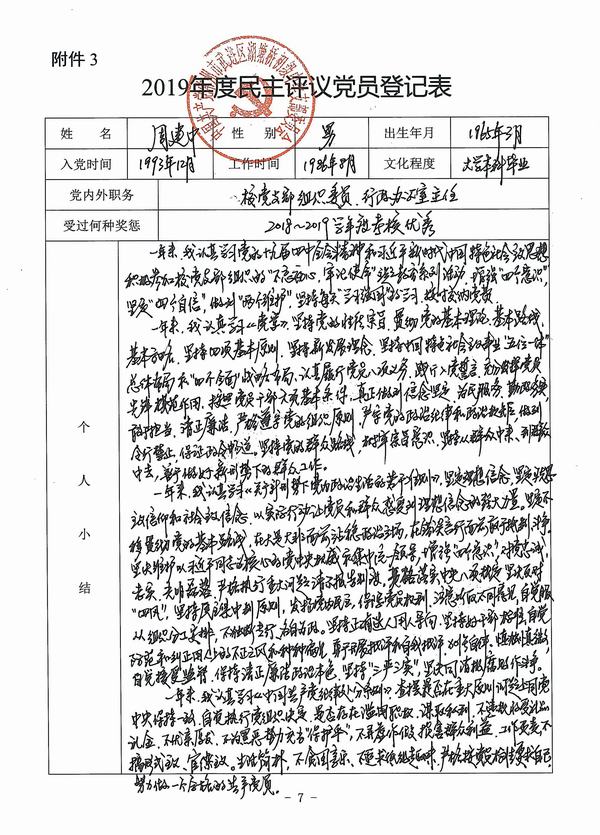 附件 3
2019年度民主评议党员登记表
姓 名 周建中 性 别 男 出生年月 1965年3月
入党时间 1993年12月 工作时间 1986年8月 文化程度 大学本科毕业
党内外职务 校党支部组织委员、行政办公室主任
受过何种奖惩 2018~2019学年度考核优秀
个人小结
一年来,我认真学习党的十九届四中全会精神和习近平新时代中国特色社会主义思想
积极参加校党支部组织的“不忘初心、牢记使命”主题教育系列活动,增强“四个意识”,
坚定“四个自信”,做到“两个维护”,坚持每天“学习强国”的学习,按时交纳党费。
一年来,我认真学习《党章》,坚持党的性质宗旨,贯彻党的基本理论、基本路线、
基本方略,坚持四项基本原则,坚持新发展理念,坚持中国特色社会主义事业“五位一体”
总体布局和“四个全面”战略布局,认真履行党员八项义务,践行入党誓言,充分发挥党员
先锋模范作用,按照党员干部六项基本条件,真正做到信念坚定、为民服务、勤政务实、
敢于担当、清正廉洁,严格遵守党的组织原则,严守党的政治纪律和政治规矩,做到
令行禁止,保证政令畅通,坚持党的群众路线,树牢宗旨意识,坚持从群众中来、到群众
中去,善于做好新形势下的群众工作。
一年来,我认真学习《关于新形势下党内政治生活的若干准则》,坚定理想信念,坚定马克思
主义信仰和社会主义信念,以实际行动让党员和群众感受到理想信念的强大力量。坚定不
移贯彻党的基本路线,在大是大非面前站稳政治立场,在错误言行面前敢于批判斗争。
坚决维护以习近平同志为核心的党中央权威和集中统一领导,增强“四个意识”,对党忠诚
老实、光明磊落,严格执行重大问题请示报告制度,贯彻落实中央八项规定,坚决反对
“四风”,坚持民主集中制原则,发扬党内民主,保障党员权利,
从组织分工安排,不独断专行、各自为政。坚持正确选人用人导向,坚持好干部标准,自觉
防范和纠正用人上的不正之风和种种偏向,勇于开展批评和自我批评,
自觉接受监督,保持清正廉洁政治本色,坚持“三严三实”,坚决同消极腐败作斗争。
一年来,我认真学习《中国共产党纪律处分条例》,查摆是否在重大原则问题上同党
中央保持一致,自觉执行党组织决定,是否存在滥用职权、谋取私利,不违规收受礼品
礼金,不优亲厚友,不为黑恶势力充当“保护伞”,不弄虚作假、损害群众利益,工作中不
搞形式主义、官僚主义,生活简朴,不贪图享乐、不追求低级趣味,严格按党员标准要求自己,
努力做一个合格的共产党员。
- 7 -